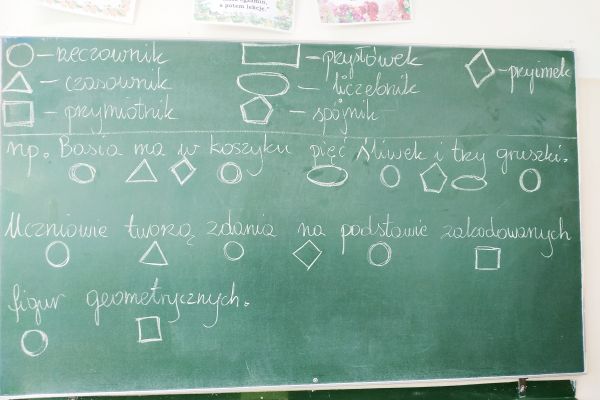 a potem lekcje,
– rzeczownik – przysłówek – przyimek
– czasownik – liczebnik
– przymiotnik – spójnik
np. Basia ma w koszyku pięć śliwek i trzy gruszki.
Uczniowie tworzą zdania na podstawie zakodowanych
figur geometrycznych.